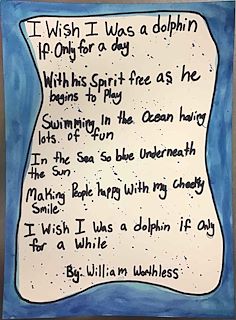 I Wish I Was a dolphin
If Only for a day
With his Spirit free as he
begins to Play
Swimming In the Ocean having
lots of fun
In the Sea So blue Underneath
the Sun
Making People happy With my Cheeky
Smile
I Wish I Was a dolphin if Only
for a While
By: William Worthless